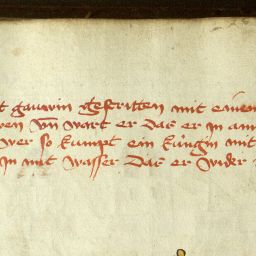 t gawin gestritten mit einem
wen vnd wart er das er in am
wer so kumpt ein kúngin mit
in mit wasser das er wider